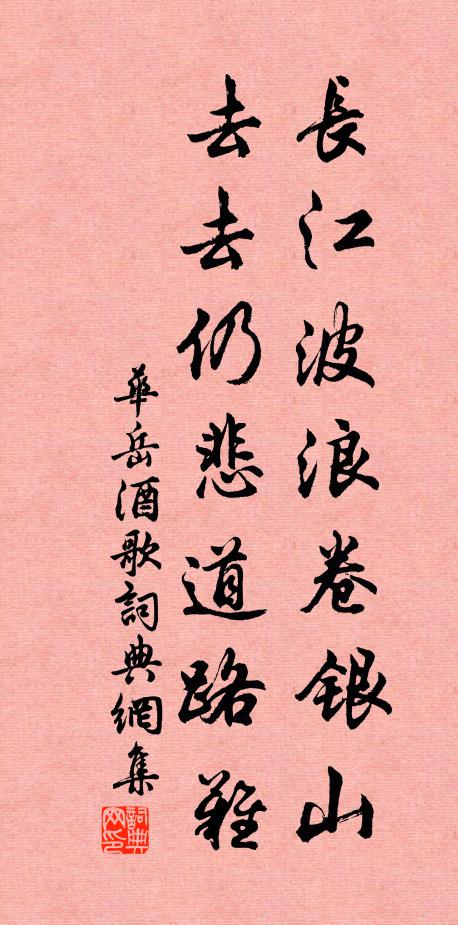 長江波浪卷銀山
去去仍悲道路難
華岳酒歌詞典網集
詞典网印